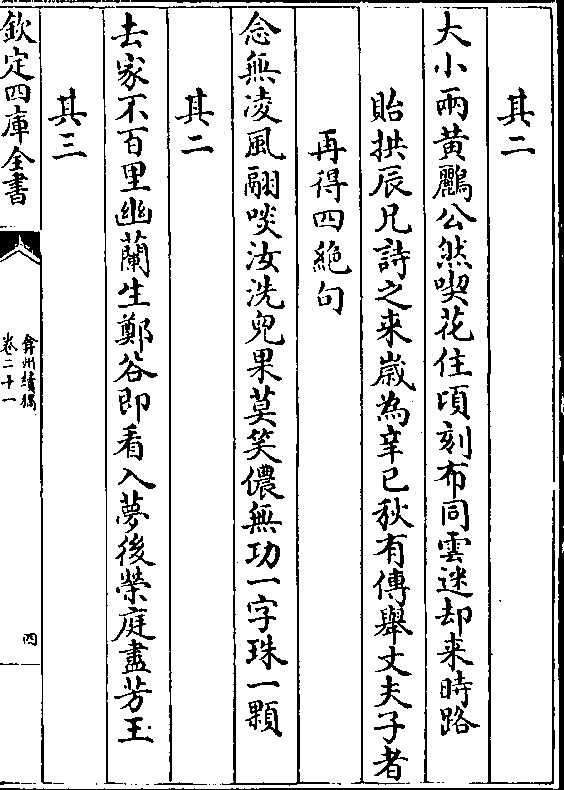 其二
大小兩黃鸝公然喫花住頃刻布同雲迷却来時路
貽拱辰兄詩之来歲為辛巳秋有傳舉丈夫子者
再得四絶句
念無凌風翮啖汝洗兒果莫笑儂無功一字珠一顆
其二
去家不百里幽蘭生鄭谷即看入夢後榮庭盡芳玉
其三
欽定四庫全書
弇州續稿
卷二十一
四